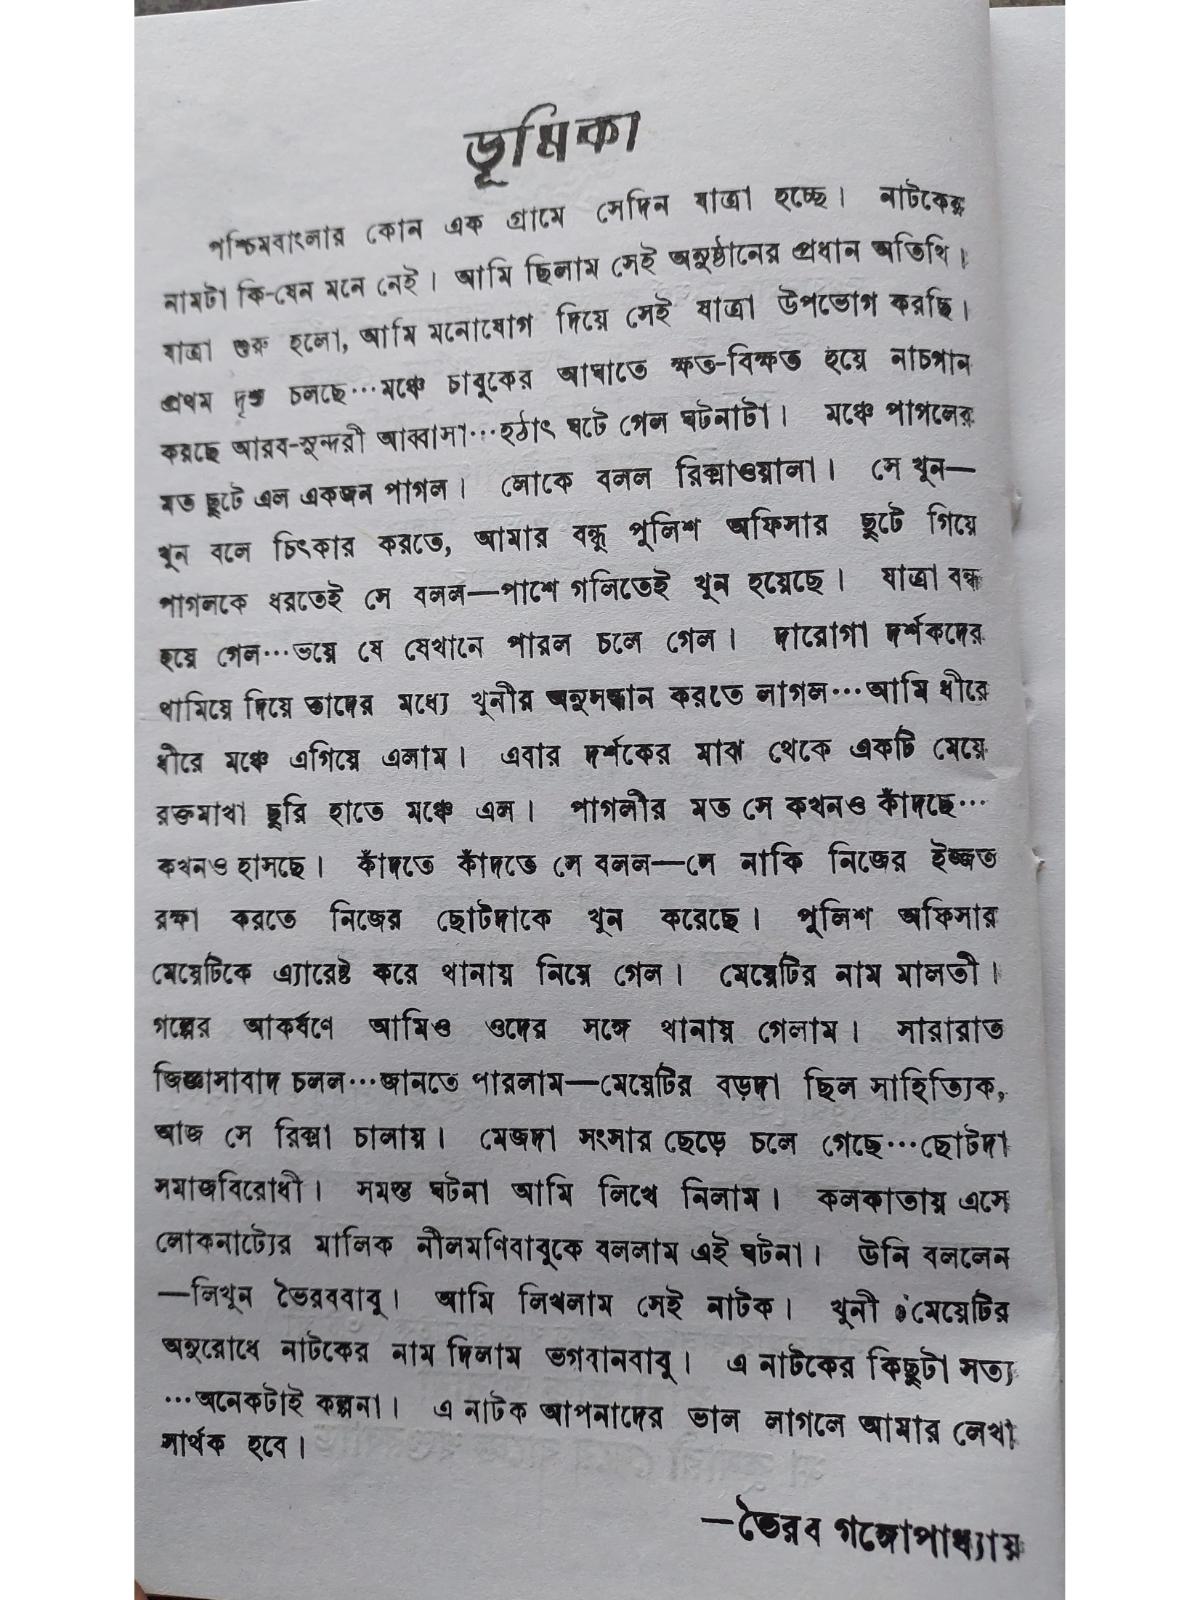 ভূমিকা
পশ্চিমবাংলার কোন এক গ্রামে সেদিন যাত্রা হচ্ছে। নাটকের
নামটা কি-যেন মনে নেই। আমি ছিলাম সেই অনুষ্ঠানের প্রধান অতিথি।
যাত্রা শুরু হলো, আমি মনোযোগ দিয়ে সেই যাত্রা উপভোগ করছি।
প্রথম দৃশ্য চলছে...মঞ্চে চাবুকের আঘাতে ক্ষত-বিক্ষত হয়ে নাচগান
করছে আরব-সুন্দরী আব্বাসা...হঠাৎ ঘটে গেল ঘটনাটা। মঞ্চে পাগলের
মত ছুটে এল একজন পাগল। লোকে বলল রিক্সাওয়ালা। সে খুন—
খুন বলে চিৎকার করতে, আমার বন্ধু পুলিশ অফিসার ছুটে গিয়ে
পাগলকে ধরতেই সে বলল—পাশে গলিতেই খুন হয়েছে। যাত্রা বন্ধ
হয়ে গেল...ভয়ে যে যেখানে পারল চলে গেল। দারোগা দর্শকদের
থামিয়ে দিয়ে তাদের মধ্যে খুনীর অনুসন্ধান করতে লাগল...আমি ধীরে
ধীরে মঞ্চে এগিয়ে এলাম। এবার দর্শকের মাঝ থেকে একটি মেয়ে
রক্তমাখা ছুরি হাতে মঞ্চে এল। পাগলীর মত সে কখনও কাঁদছে...
কখনও হাসছে। কাঁদতে কাঁদতে সে বলল—সে নাকি নিজের ইজ্জত
রক্ষা করতে নিজের ছোটদাকে খুন করেছে। পুলিশ অফিসার
মেয়েটিকে এ্যারেষ্ট করে থানায় নিয়ে গেল। মেয়েটির নাম মালতী।
গল্পের আকর্ষণে আমিও ওদের সঙ্গে থানায় গেলাম। সারারাত
জিজ্ঞাসাবাদ চলল...জানতে পারলাম—মেয়েটির বড়দা ছিল সাহিত্যিক,
আজ সে রিক্সা চালায়। মেজদা সংসার ছেড়ে চলে গেছে...ছোটদা
সমাজবিরোধী। সমস্ত ঘটনা আমি লিখে নিলাম। কলকাতায় এসে
লোকনাট্যের মালিক নীলমণিবাবুকে বললাম এই ঘটনা। উনি বললেন
—লিখুন ভৈরববাবু। আমি লিখলাম সেই নাটক। খুনী মেয়েটির
অনুরোধে নাটকের নাম দিলাম ভগবানবাবু। এ নাটকের কিছুটা সত্য
...অনেকটাই কল্পনা। এ নাটক আপনাদের ভাল লাগলে আমার লেখা
সার্থক হবে।
—ভৈরব গঙ্গোপাধ্যায়